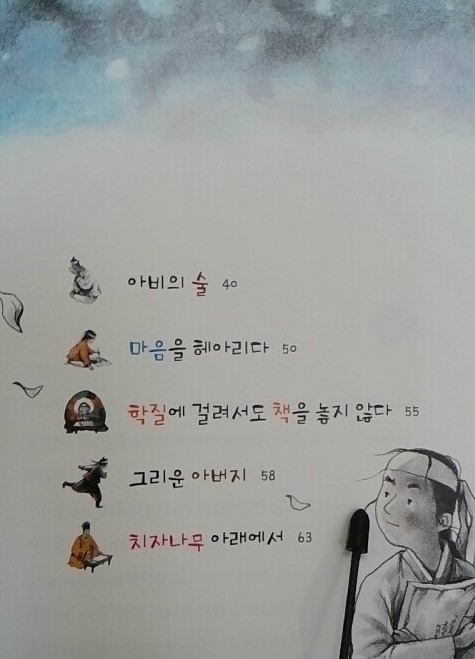 아비의 술 40
마음을 헤아리다 50
학질에 걸려서도 책을 놓지 않다 55
그리운 아버지 58
치자나무 아래에서 63